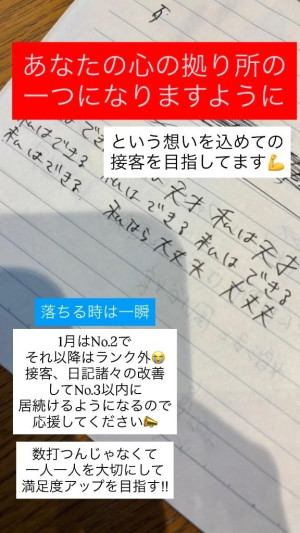 あなたの心の拠り所の
一つになりますように
という想いを込めての
接客を目指してます💪
私はできる
私はできる
私は天才 私は天才
私はできる 私はできる
私なら大丈夫 大丈夫
落ちる時は一瞬
1月はNo.2で
それ以降はランク外😭
接客、日記諸々の改善
してNo.3以内に
居続けるようになるので
応援してください📣
数打つんじゃなくて
一人一人を大切にして
満足度アップを目指す!!